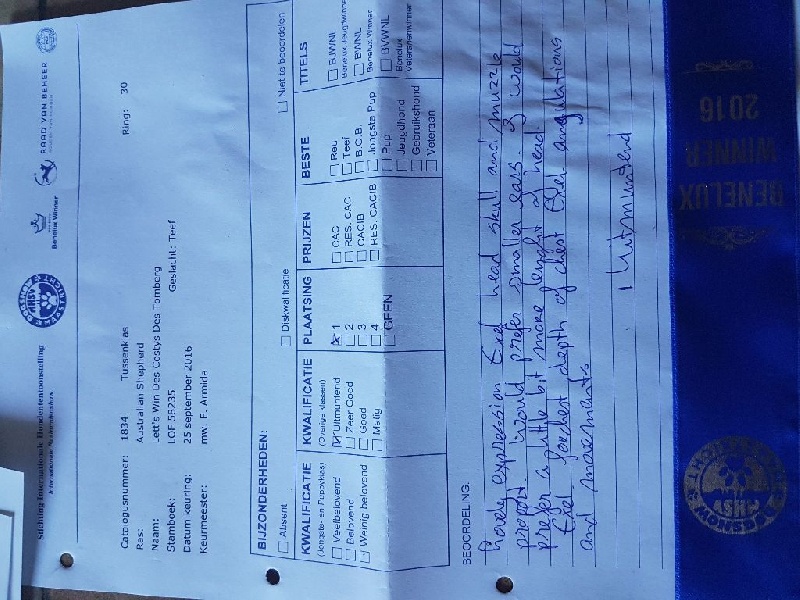 Stichting Internationale Hondententoonstelling
Benelux Winner
RAAD VAN BEHEER
Catalogusnummer: 1834 Tussenklas
Ring: 30
Ras: Australian Shepherd
Naam: Lett's Win Des Costys Des Tomberg
Geslacht: Teef
Stamboek: LOF 55235
Datum keuring: 25 september 2016
Keurmeester: mw. F. Armida
BIJZONDERHEDEN:
Absent
Diskwalificatie
Niet te beoordelen
KWALIFICATIE
(Jongste- en Pupqvklas)
Veelbelovend
Belovend
Weinig belovend
KWALIFICATIE
(Overige klassen)
Uitmuntend
Zeer Goed
Goed
Matig
PLAATSING
1
2
3
4
GEEN
PRIJZEN
CAC
RES. CAC
CACIB
RES. CACIB
BESTE
Reu
Teef
B.O.B.
Jongste Pup
Pup
Jeugdhond
Gebruikshond
Veteraan
TITELS
BJWNL
Benelux Jeugdwinner
BWNL
Benelux Winner
BVWNL
Benelux
Veteranenwinner
BEOORDELING:
lovely expression Exel head skull and muzzle
proport would prefer smaller ears. I would
prefer a little bit more lenght of head
Exel forchest depth of chest Exel angulations
and movements
Uitmuntend
BENELUX
WINNER
2016